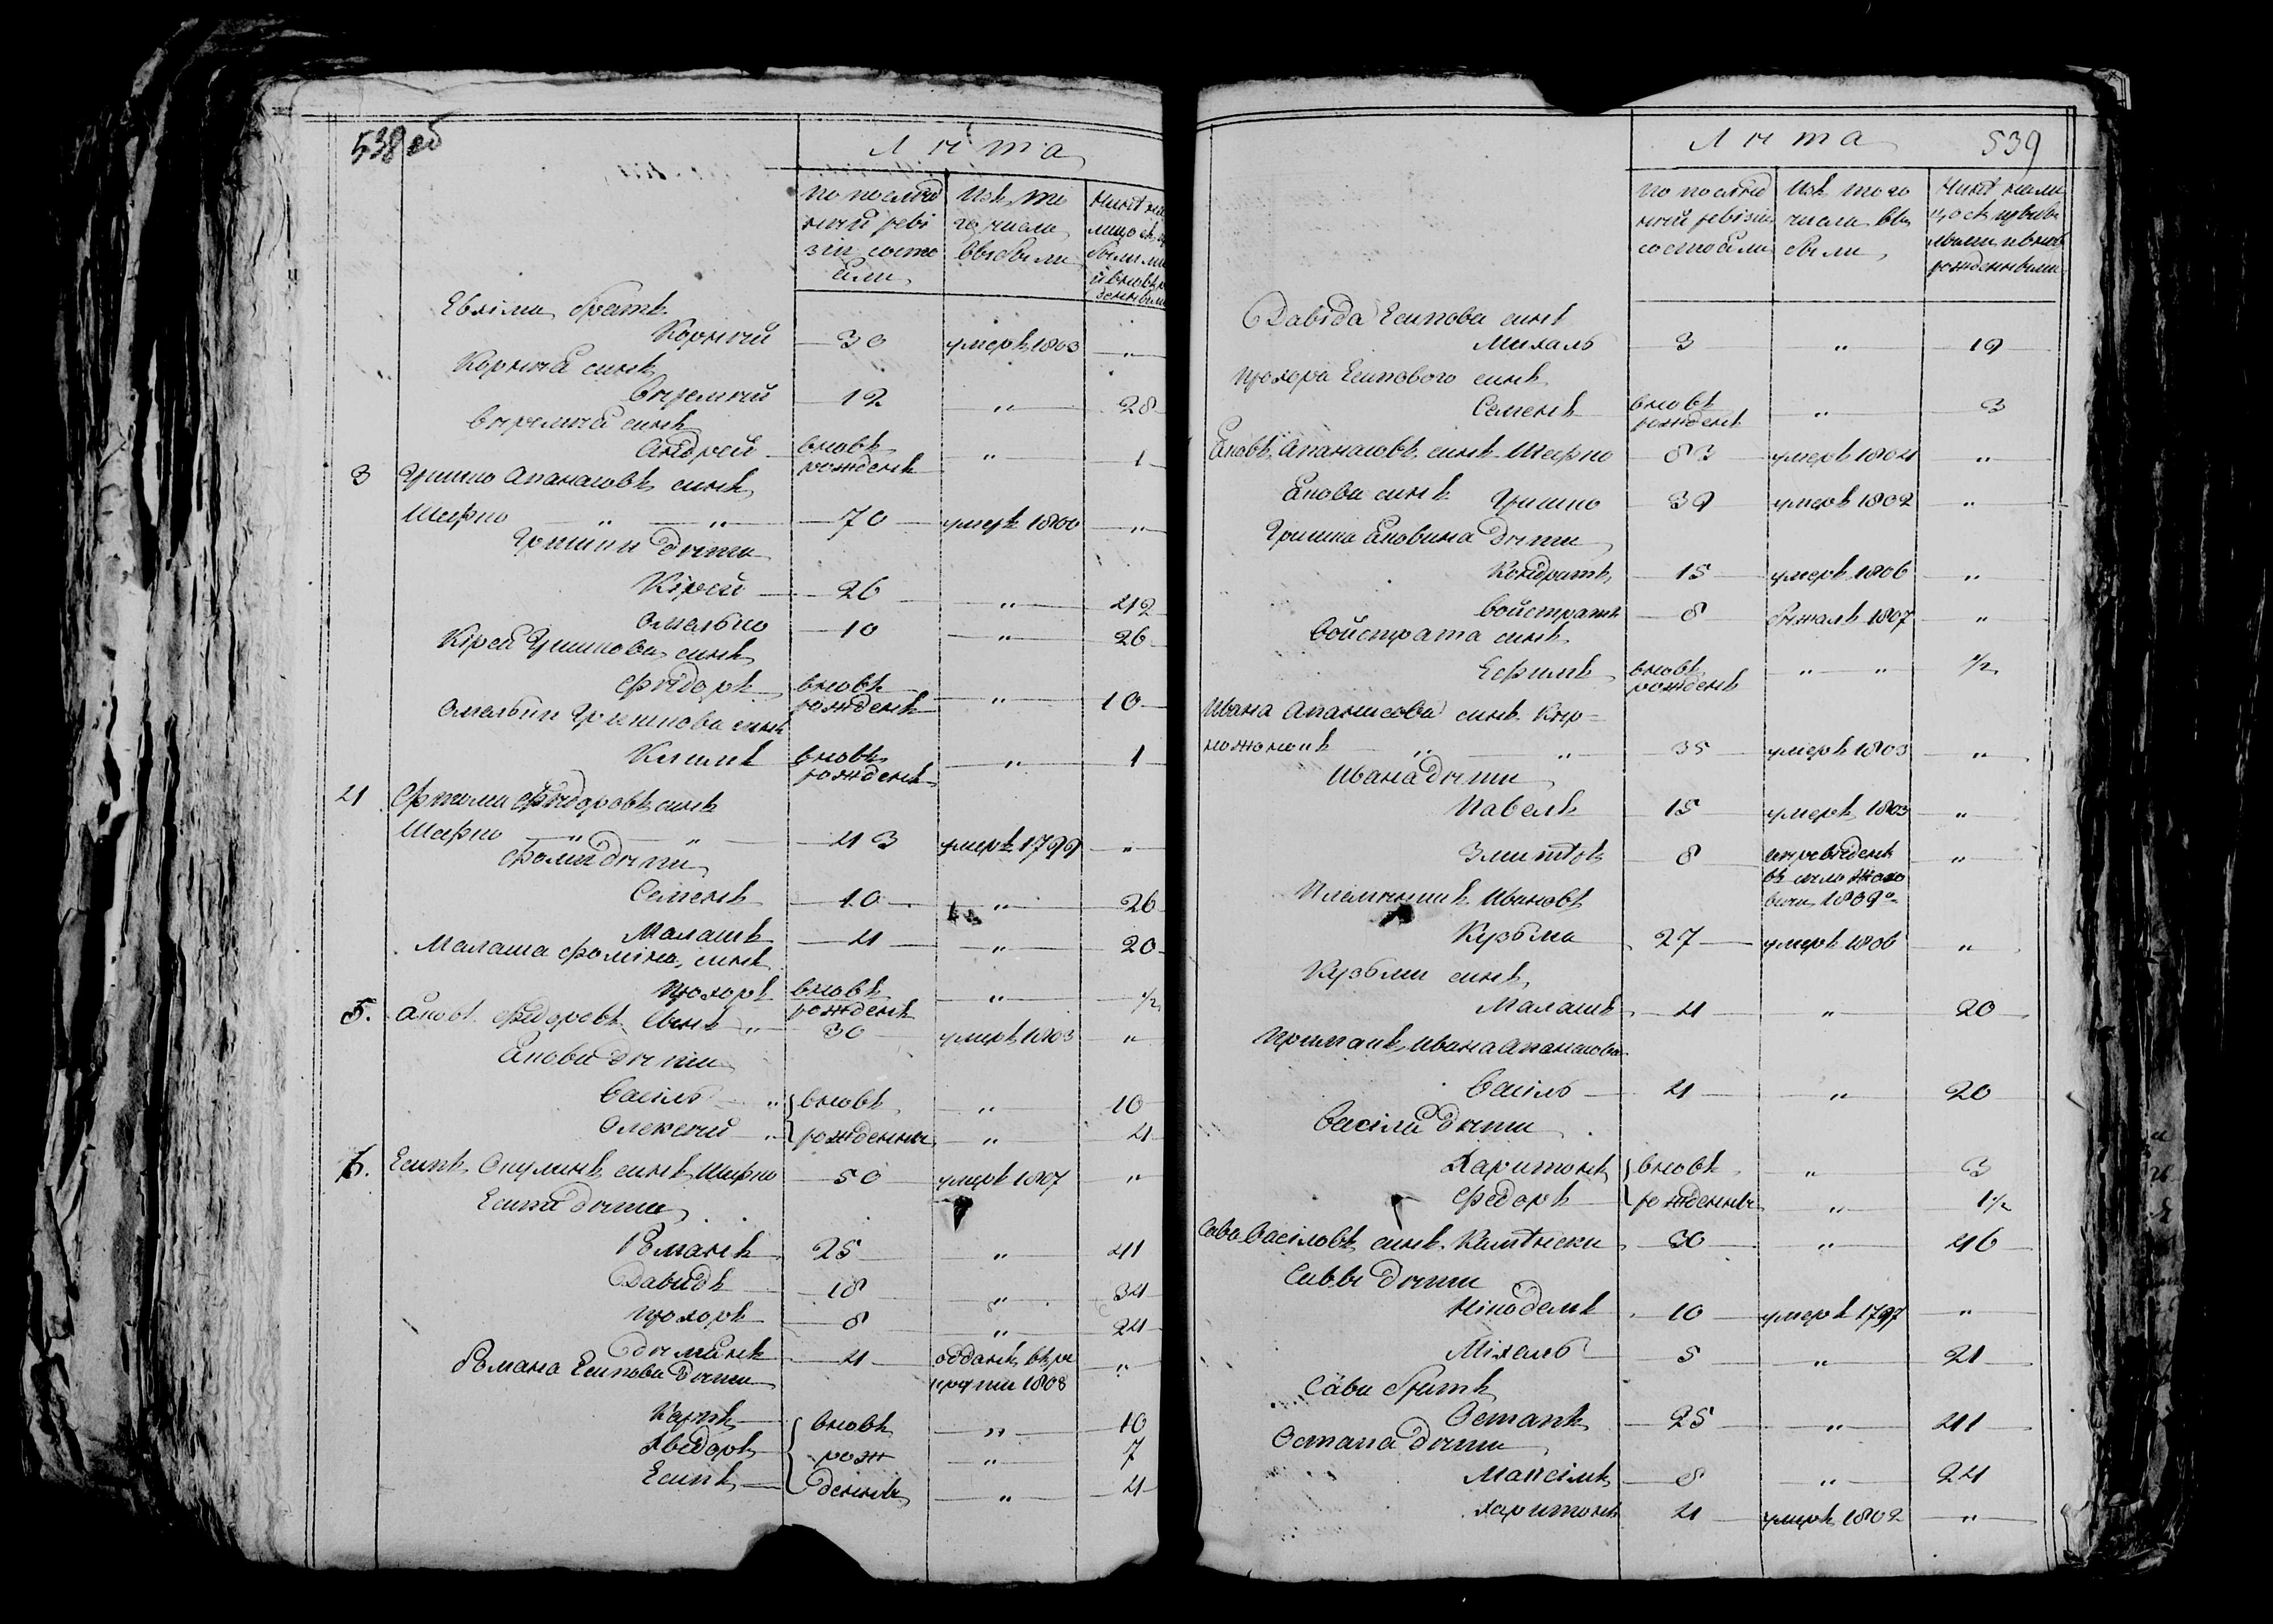 538 об
Лѣта
по послѣд
ней реві
зіи состо
яли
Изъ то
го числа
выбыли
Нынѣ на
лицо съ
были
и вновь
Евхіма братъ
Корнѣй 30 умеръ 1803 "
Корнѣя синъ
Еремѣй 12 " 28
Еремѣя синъ
Андрей вновь рожденъ " 1
3 Гришко Апанасовъ синъ
Шафко " " 70 умеръ 1800 "
Гришки дѣти
Кірей 26 " 42
Омелько 10 " 26
Кірея Гришкова синъ
Фѣдоръ вновь рожденъ " 10
Омельки Гришкова синъ
Климъ вновь рожденъ " 1
4 Фтома Фѣдоровъ синъ
Шафко " " 43 умеръ 1799 "
Фоми дѣти
Семенъ 10 " 26
Малашъ 4 " 20
Малаша Фоміна синъ
Прохоръ вновь рожденъ " 1/2
5. Яковъ Фѣдоровъ синъ " 30 умеръ 1803 "
Якова дѣти
Васіль " вновь " 10
Олексѣй " рожденны " 4
6. Есипъ Окулинъ синъ Шафко 50 умеръ 1807 "
Есипа дѣти
Романъ 25 " 41
Давидъ 18 " 34
Прохоръ 8 " 24
Дѣмянъ 4 отданъ въ ре
крути 1808 "
Романа Есипова дѣти
Карпъ вновь " 10
Хведоръ рож " 7
Есипъ денны " 4
Лѣта
539
по послѣд
ней ревізіи
состояли
Изъ того
числа вы
были
Нынѣ нали
цо съ прибы
лыми и вновь
рожденными
Давида Есипова синъ
Михаль 3 " 19
Прохора Есипового синъ
Семенъ вновь рожденъ " 3
Яковъ Апанасовъ синъ Шафко 83 умеръ 1804 "
Якова синъ Гришко 39 умеръ 1802 "
Гришка Яковина дѣти
Кондратъ 15 умеръ 1806 "
Войстратъ 8 бѣжалъ 1807 "
Войстрата синъ
Ефимъ вновь рожденъ " " 1/2
Ивана Апанасова синъ Кир=
" " 35 умеръ 1803 "
Ивана дѣти
Павелъ 15 умеръ 1803 "
Змитръ 8 переведенъ
въ село
1809 "
Племѣнникъ Ивановъ
Кузьма 27 умеръ 1806 "
Кузьми синъ
Малашъ 4 " 20
Примакъ Ивана Апанасова
Васіль 4 " 20
Васіля дѣти
Харитонъ вновь " 3
Федоръ рожденны " 1 1/2
Сава Васіловъ синъ 30 " 46
Саввы дѣти
Нікодемъ 10 умеръ 1797 "
Міхаль 5 " 21
Сави братъ
Остапъ 25 " 41
Остапа дѣти
Максімъ 8 " 24
Харитонъ 4 умеръ 1802 "